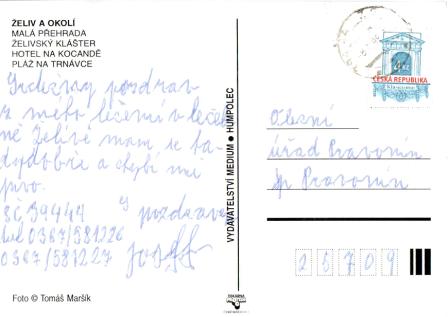 ŽELIV A OKOLÍ
MALÁ PŘEHRADA
ŽELIVSKÝ KLÁŠTER
HOTEL NA KOCANDĚ
PLÁŽ NA TRNÁVCE
Srdečný pozdrav
z mého léčení v léčeb
ně Želivě mám se ta
dy dobře a chybí mi
pivo.
S pozdravem
tel 0367/581226
0367/581227 Josef
Foto © Tomáš Maršík
VYDAVATELSTVÍ MEDIUM • HUMPOLEC
4 Kč
ČESKÁ REPUBLIKA
Klasicismus
Obecní
úřad Pravonín
Pravonín
25709